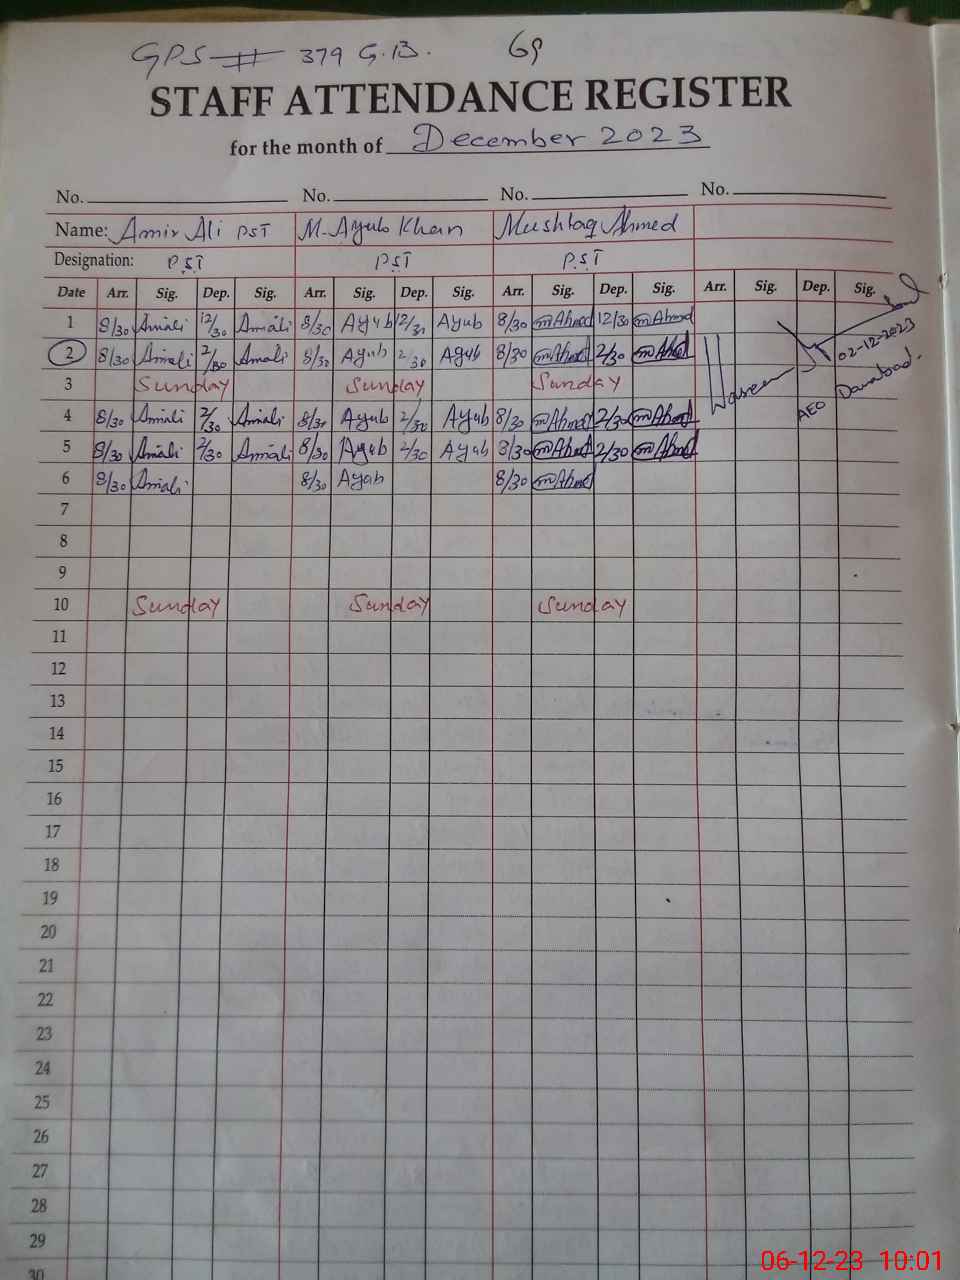 GPS # 379 G.B. 69
STAFF ATTENDANCE REGISTER
for the month of December 2023
No. No. No. No.
Name: Amir Ali PST M. Ayub Khan Mushtaq Ahmed
Designation: P.S.T P.S.T P.S.T
Date Arr. Sig. Dep. Sig. Arr. Sig. Dep. Sig. Arr. Sig. Dep. Sig. Arr. Sig. Dep. Sig.
1 8/30 Amiali 12/30 Amiali 8/30 Ayub 12/30 Ayub 8/30 mAhmed 12/30 mAhmed
2 8/30 Amiali 2/30 Amiali 8/30 Ayub 2/30 Ayub 8/30 mAhmed 2/30 mAhmed 02-12-2023
3 Sunday Sunday Sunday Waseem
4 8/30 Amiali 2/30 Amiali 8/30 Ayub 2/30 Ayub 8/30 mAhmed 2/30 mAhmed AEO
5 8/30 Amiali 2/30 Amiali 8/30 Ayub 2/30 Ayub 8/30 mAhmed 2/30 mAhmed
6 8/30 Amiali 8/30 Ayub 8/30 mAhmed
7
8
9
10 Sunday Sunday Sunday
11
12
13
14
15
16
17
18
19
20
21
22
23
24
25
26
27
28
29
30
06-12-23 10:01